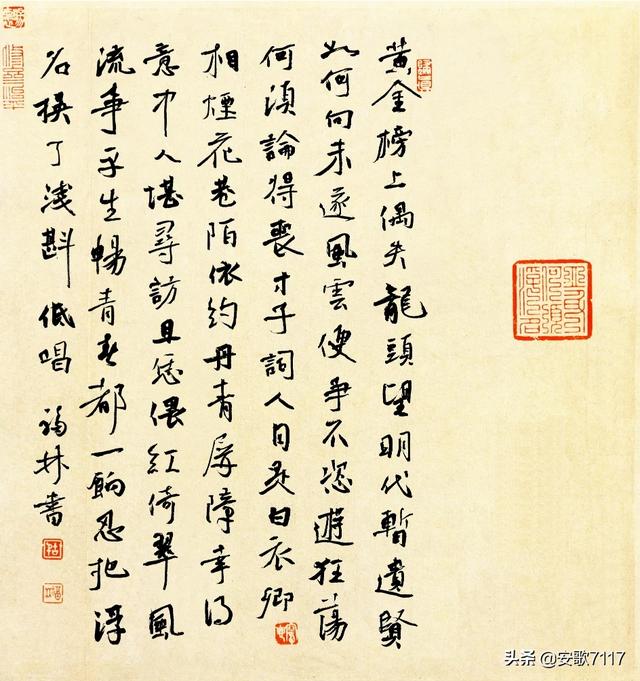 黄金榜上偶失龍頭望明代暫遺賢
如何向未遂風雲便爭不恣遊狂蕩
何須論得喪才子詞人自是白衣卿
相煙花巷陌依約丹青屏障幸得
意中人堪尋訪且恁偎紅倚翠風
流事平生暢青春都一餉忍把浮
名換了淺斟低唱 福林書
头条 @安歌7117